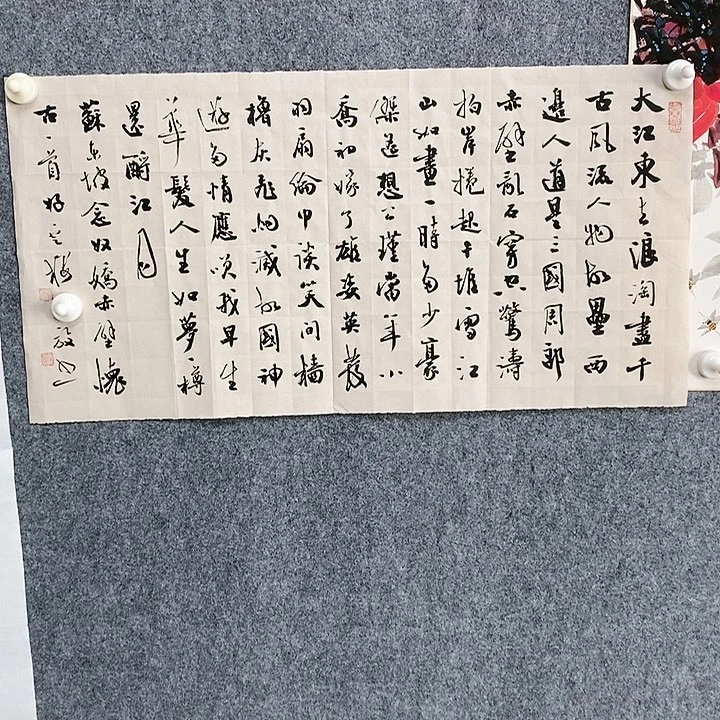 大江東去浪淘盡千
古風流人物故壘西
邊人道是三國周郎
赤壁亂石穿空驚濤
拍岸捲起千堆雪江
山如畫一時多少豪
傑遙想公瑾當年小
喬初嫁了雄姿英發
羽扇綸巾談笑間檣
櫓灰飛烟滅故國神
遊多情應笑我早生
華髮人生如夢一樽
還酹江月
蘇東坡念奴嬌赤壁懷
古一首